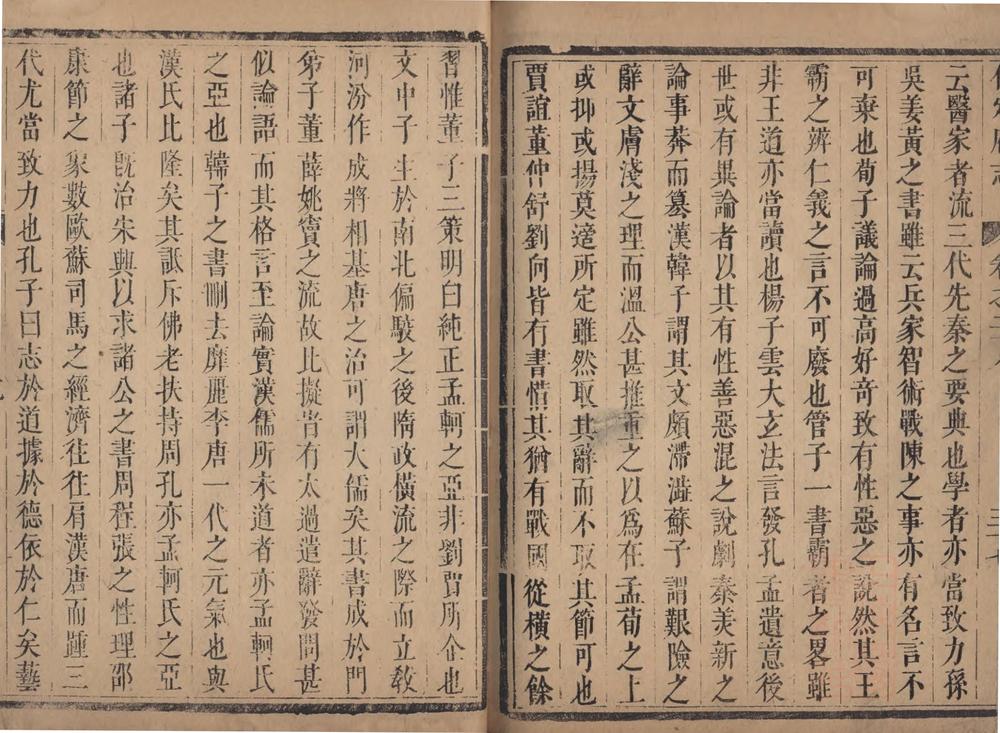 云醫家者流三代先秦之要典也學者亦當致力孫
吳姜黃之書雖云兵家智術戰陳之事亦有名言不
可棄也荀子議論過高好竒致有性惡之說然其王
霸之辨仁義之言不可廢也管子一書霸者之畧雖
非王道亦當讀也楊子雲大玄法言發孔孟遺意後
世或有異論者以其有性善惡混之說劇秦美新之
論事莽而篡漢韓子謂其文頗滯澁蘇子謂艱險之
辭文膚淺之理而溫公甚推重之以爲在孟荀之上
或抑或揚莫適所定雖然取其辭而不取其節可也
賈誼董仲舒劉向皆有書惜其猶有戰國從橫之餘
習惟董子三策明白純正孟軻之亞非劉賈所企也
文中子生於南北偏駮之後隋政橫流之際而立敎
河汾作成將相基唐之治可謂大儒矣其書成於門
弟子董薛姚竇之流故比擬者有太過遣辭發問甚
似論語而其格言至論實漢儒所未道者亦孟軻氏
之亞也韓子之書刪去靡麗李唐一代之元氣也與
漢氏比隆矣其詆斥佛老扶持周孔亦孟軻氏之亞
也諸子旣治朱興以求諸公之書周程張之性理邵
康節之象數歐蘇司馬之經濟往往肩漢唐而踵三
代尤當致力也孔子曰志於道據於德依於仁矣藝